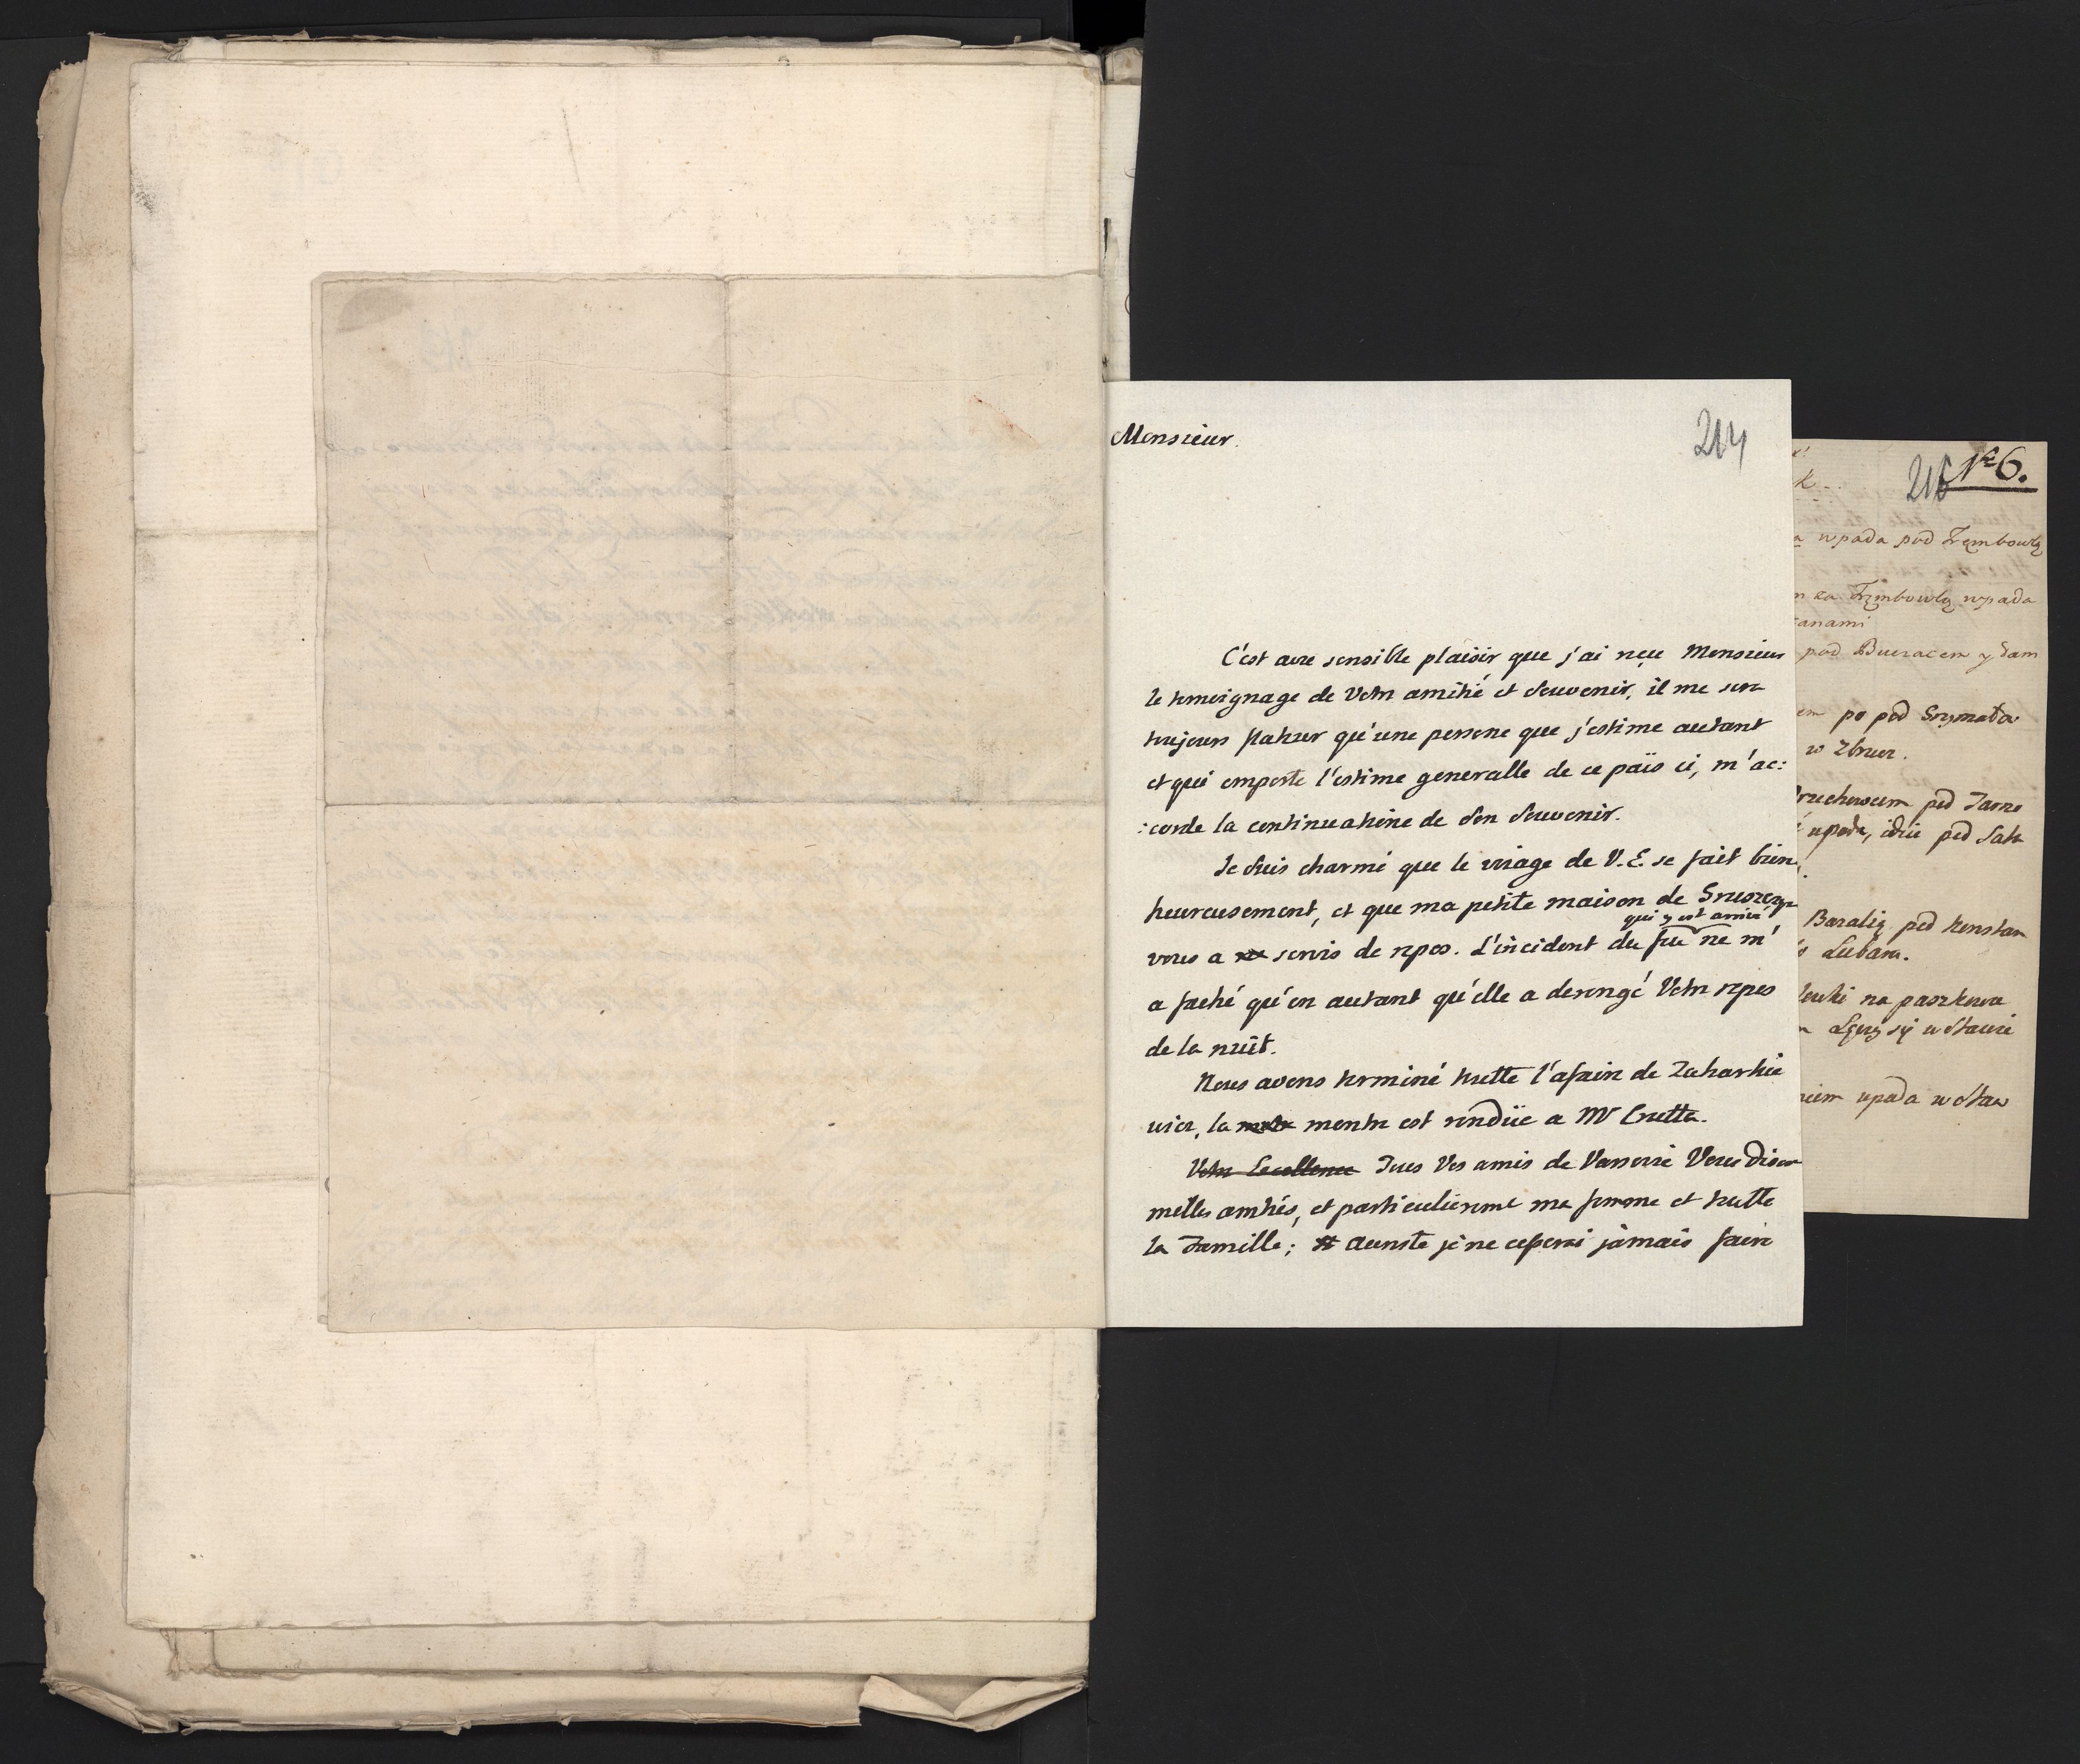 Monsieur.
214
C'est avre sensible plaisir que j'ai reçu Monsieur
le temoignage de Votr amitié et Souvenir, il me sera
toujours flateur qu'une persone que j'estime autant
et qui emporte l'estime generalle de ce païs ci, m'ac:
:corde la continuatione de Son Souvenir.
Je Suis charmé que le viage de V. E. se fait bien
heureusement, et que ma petite maison de
qui y est arrivé
vous a servis de repos. L'incident du feu ne m'
a faché qu'en autant qu'elle a derengé Votr repos
de la nuit.
Nous avons terminé tutte l'afaire de Zakarkie
wicz, la montre est rendüe a Mr
Votr Excellence Tous Vos amis de Varsovie Vous disent
milles amitiés, et particulierement ma femme et tutte
la Famille; aureste je ne cesserai jamais faire
No 6.
216
k
a wpada pod Trembowlą
za Trembowlą wpada
anami
pod Buczaczem y tam
em po pod Grzymałow
w Zbrucz.
pod Tarno
upada, idzie pod Sata
Bazalią pod Konstan
Lubara.
na paszkowa
Łączy się w Stawie
niem upada w Staw